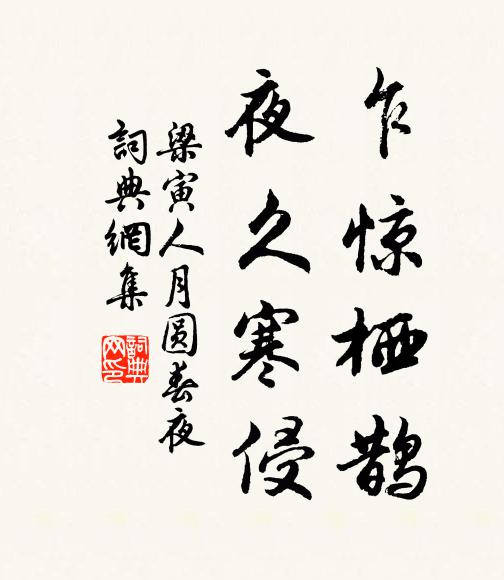 乍惊栖鹊
夜久寒侵
梁寅人月圆春夜
詞典網集
詞典网印